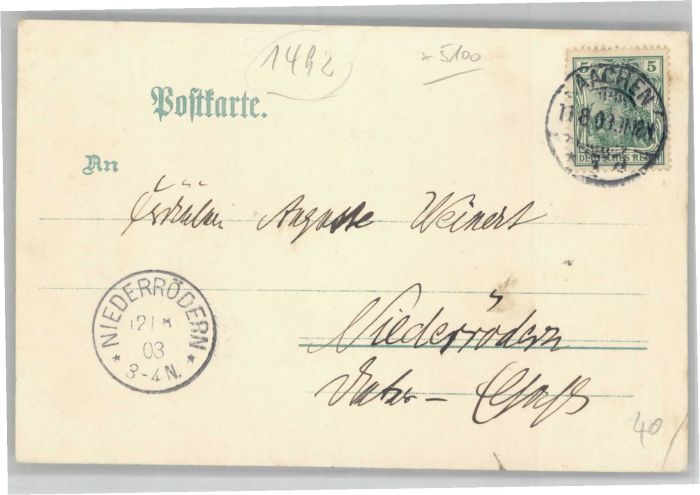 1492
x 5100
5 5
Postkarte.
DEUTSCHES REICH
AACHEN
11.8.03.
An
Fräulein Auguste Weinert
Niederrödern
Unter-Elsaß
NIEDERRÖDERN
12/8
03
3-4N.
40